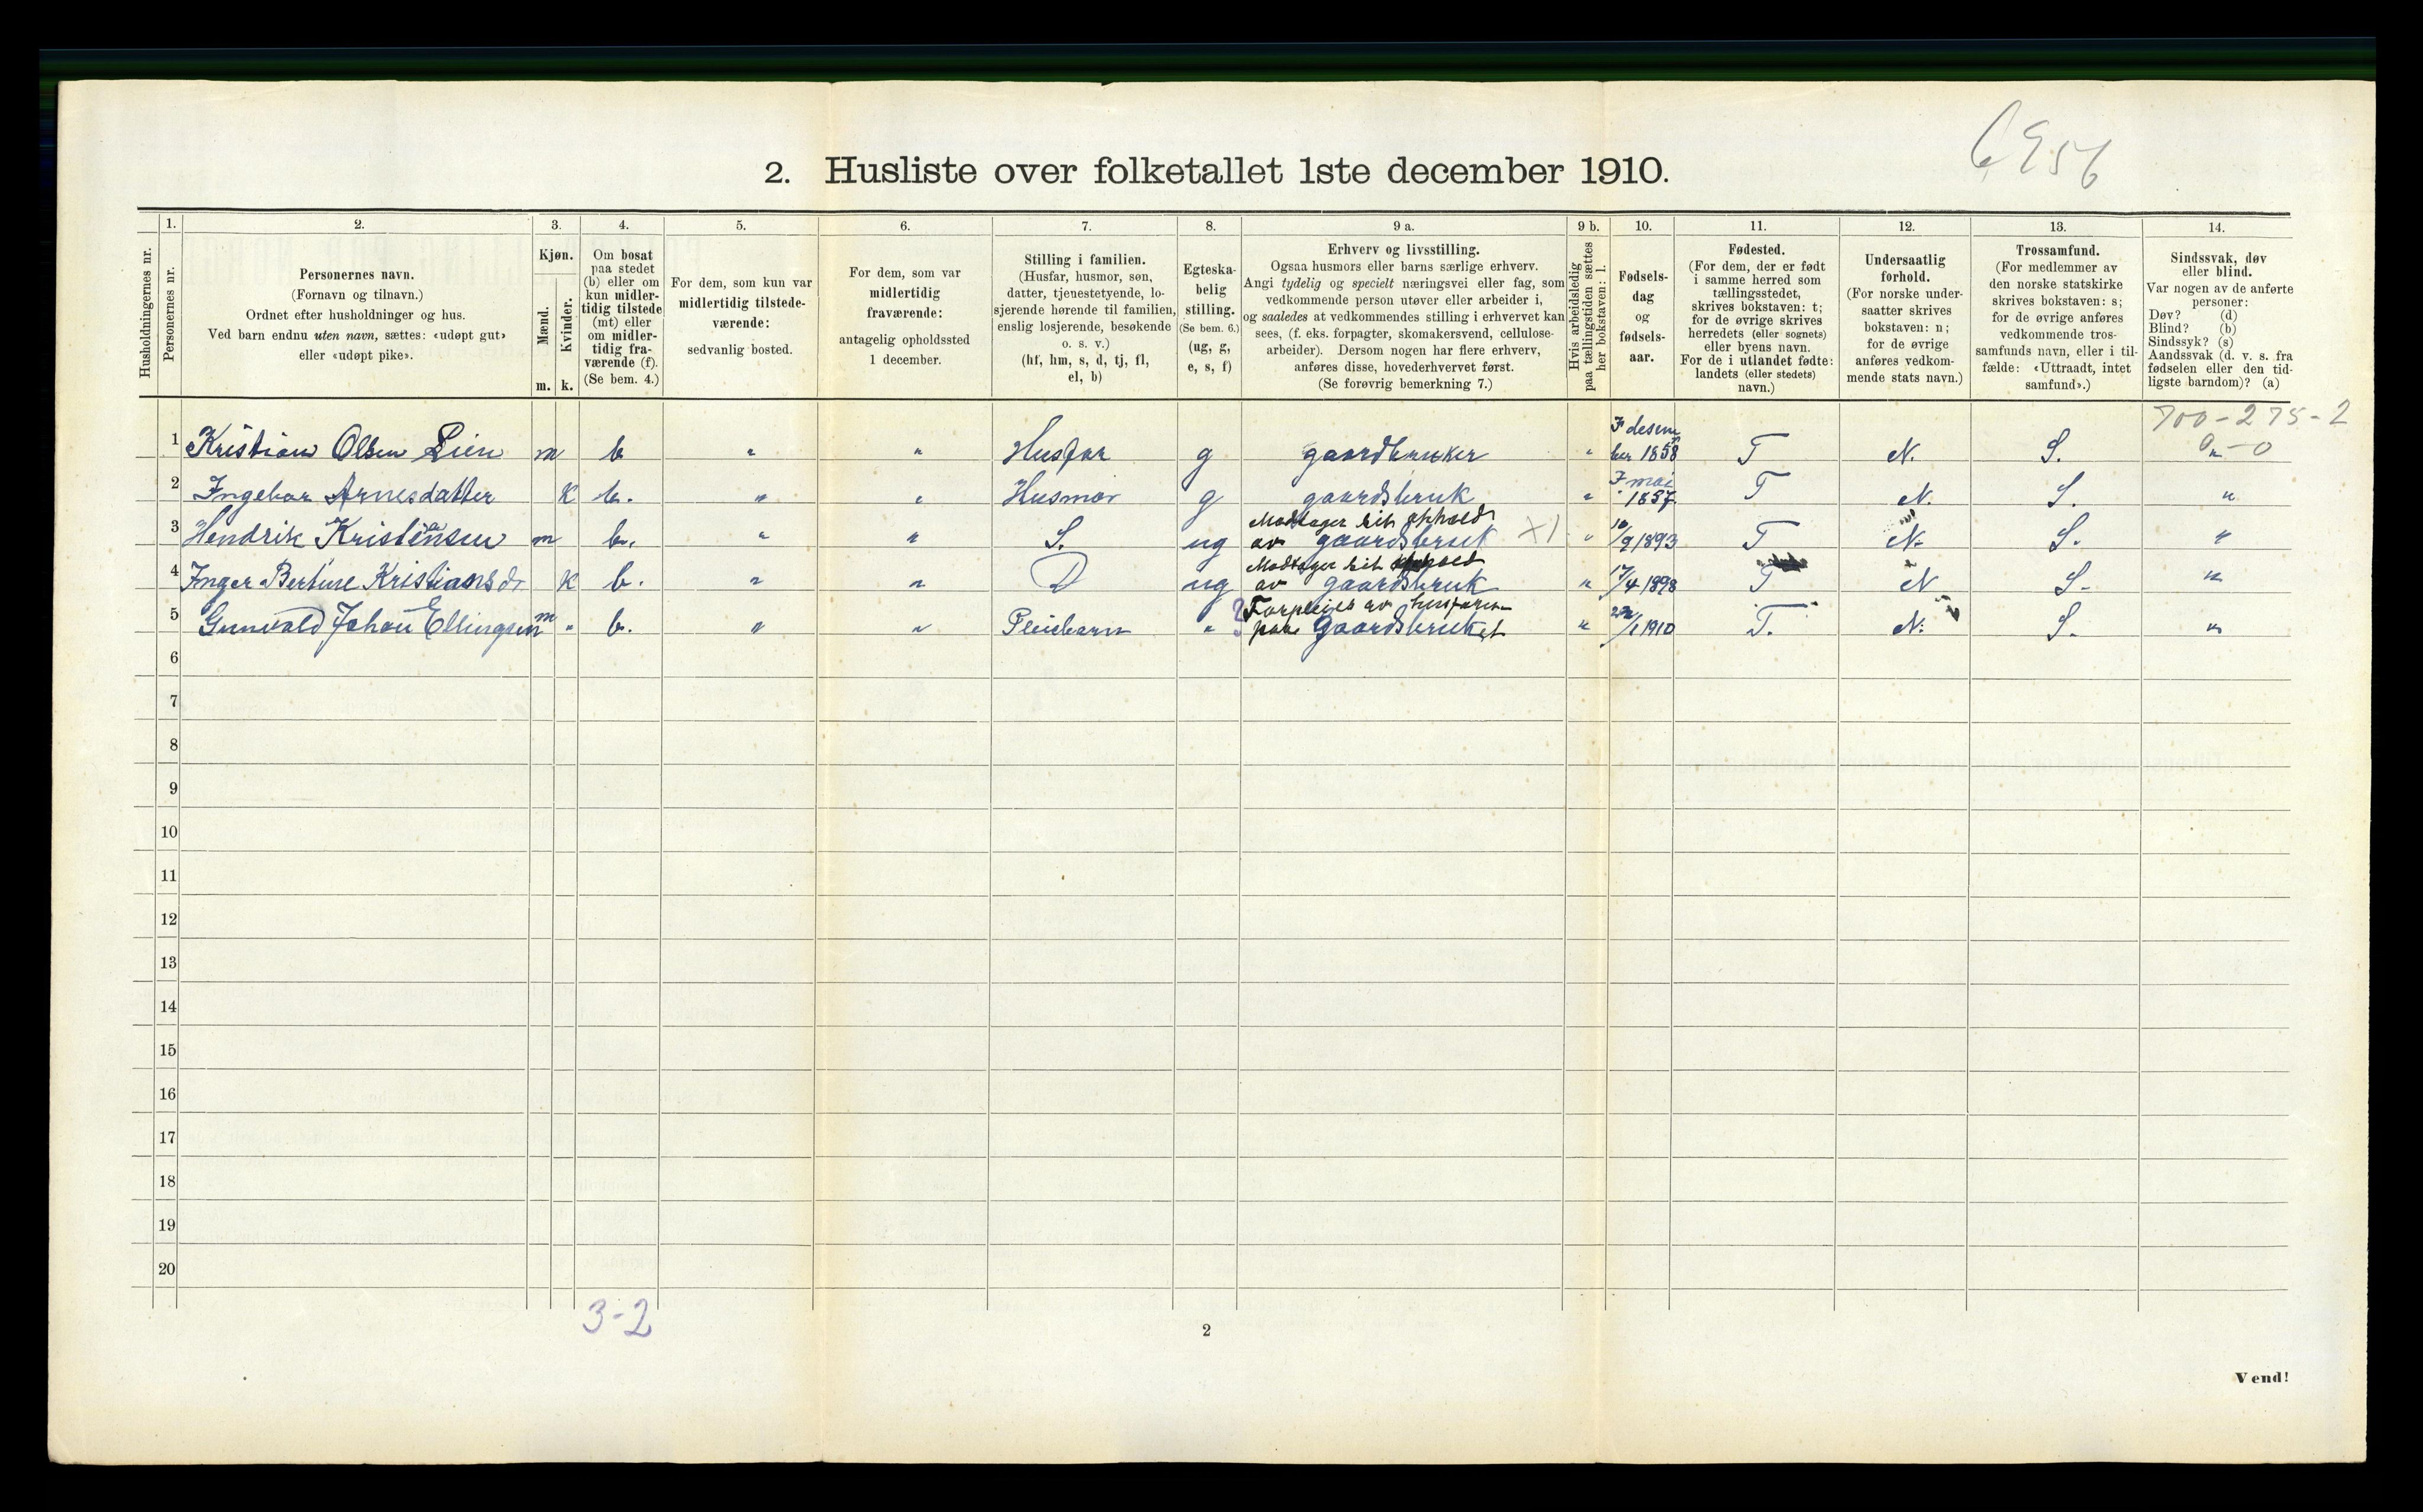 6956
2. Husliste over folketallet 1ste december 1910.
Husholdningernes nr.
1.
Personernes nr.
2.
Personernes navn.
(Fornavn og tilnavn.)
Ordnet efter husholdninger og hus.
Ved barn endnu uten navn, sættes: «udøpt gut»
eller «udøpt pike».
3.
Kjøn.
Mænd.
Kvinder.
m. k.
4.
Om bosat
paa stedet
(b) eller om
kun midler-
tidig tilstede
(mt) eller
om midler-
tidig fra-
værende (f).
(Se bem. 4.)
5.
For dem, som kun var
midlertidig tilstede-
værende:
sedvanlig bosted.
6.
For dem, som var
midlertidig
fraværende:
antagelig opholdssted
1 december.
7.
Stilling i familien.
(Husfar, husmor, søn,
datter, tjenestetyende, lo-
sjerende hørende til familien,
enslig losjerende, besøkende
o. s. v.)
(hf, hm, s, d, tj, fl,
el, b)
8.
Egteska-
belig
stilling.
(Se bem. 6.)
(ug, g,
e, s, f)
9 a.
Erhverv og livsstilling.
Ogsaa husmors eller barns særlige erhverv.
Angi tydelig og specielt næringsvei eller fag, som
vedkommende person utøver eller arbeider i,
og saaledes at vedkommendes stilling i erhvervet kan
sees, (f. eks. forpagter, skomakersvend, cellulose-
arbeider). Dersom nogen har flere erhverv,
anføres disse, hovederhvervet først.
(Se forøvrig bemerkning 7.)
9 b.
Hvis arbeidsledig
paa tællingstiden sættes
her bokstaven: l.
10.
Fødsels-
dag
og
fødsels-
aar.
11.
Fødested.
(For dem, der er født
i samme herred som
tællingsstedet,
skrives bokstaven: t;
for de øvrige skrives
herredets (eller sognets)
eller byens navn.
For de i utlandet fødte:
landets (eller stedets)
navn.)
12.
Undersaatlig
forhold.
(For norske under-
saatter skrives
bokstaven: n;
for de øvrige
anføres vedkom-
mende stats navn.)
13.
Trossamfund.
(For medlemmer av
den norske statskirke
skrives bokstaven: s;
for de øvrige anføres
vedkommende tros-
samfunds navn, eller i til-
fælde: «Uttraadt, intet
samfund».)
14.
Sindssvak, døv
eller blind.
Var nogen av de anførte
personer:
Døv? (d)
Blind? (b)
Sindssyk? (s)
Aandssvak (d. v. s. fra
fødselen eller den tid-
ligste barndom)? (a)
700-275-2
0-0
1 Kristian Olsen Lien m b " " Husfar g gaardbruker " 7 desem
ber 1858 T N. S. "
2 Ingebor Arnesdatter K b. " " Husmor g gaardsbruk " 7 mai
1857 T N. S. "
3 Hendrik Kristensen m b. " " S. ug Modtager sit ophold
av gaardsbruk X1 " 10/9 1893 T N. S. "
4 Inger Bertine Kristiansdr K b. " " D ug Modtager sit ophold
av gaardsbruk " 17/4 1898 T N S. "
5 Gunvald Johan Ellingsen m " b. " " Pleiebarn " Forpleies av husfaren
paa gaardsbruket " 22/1 1910 T. N. S. "
6
7
8
9
10
11
12
13
14
15
16
17
18
19
20
3-2
2
Vend!